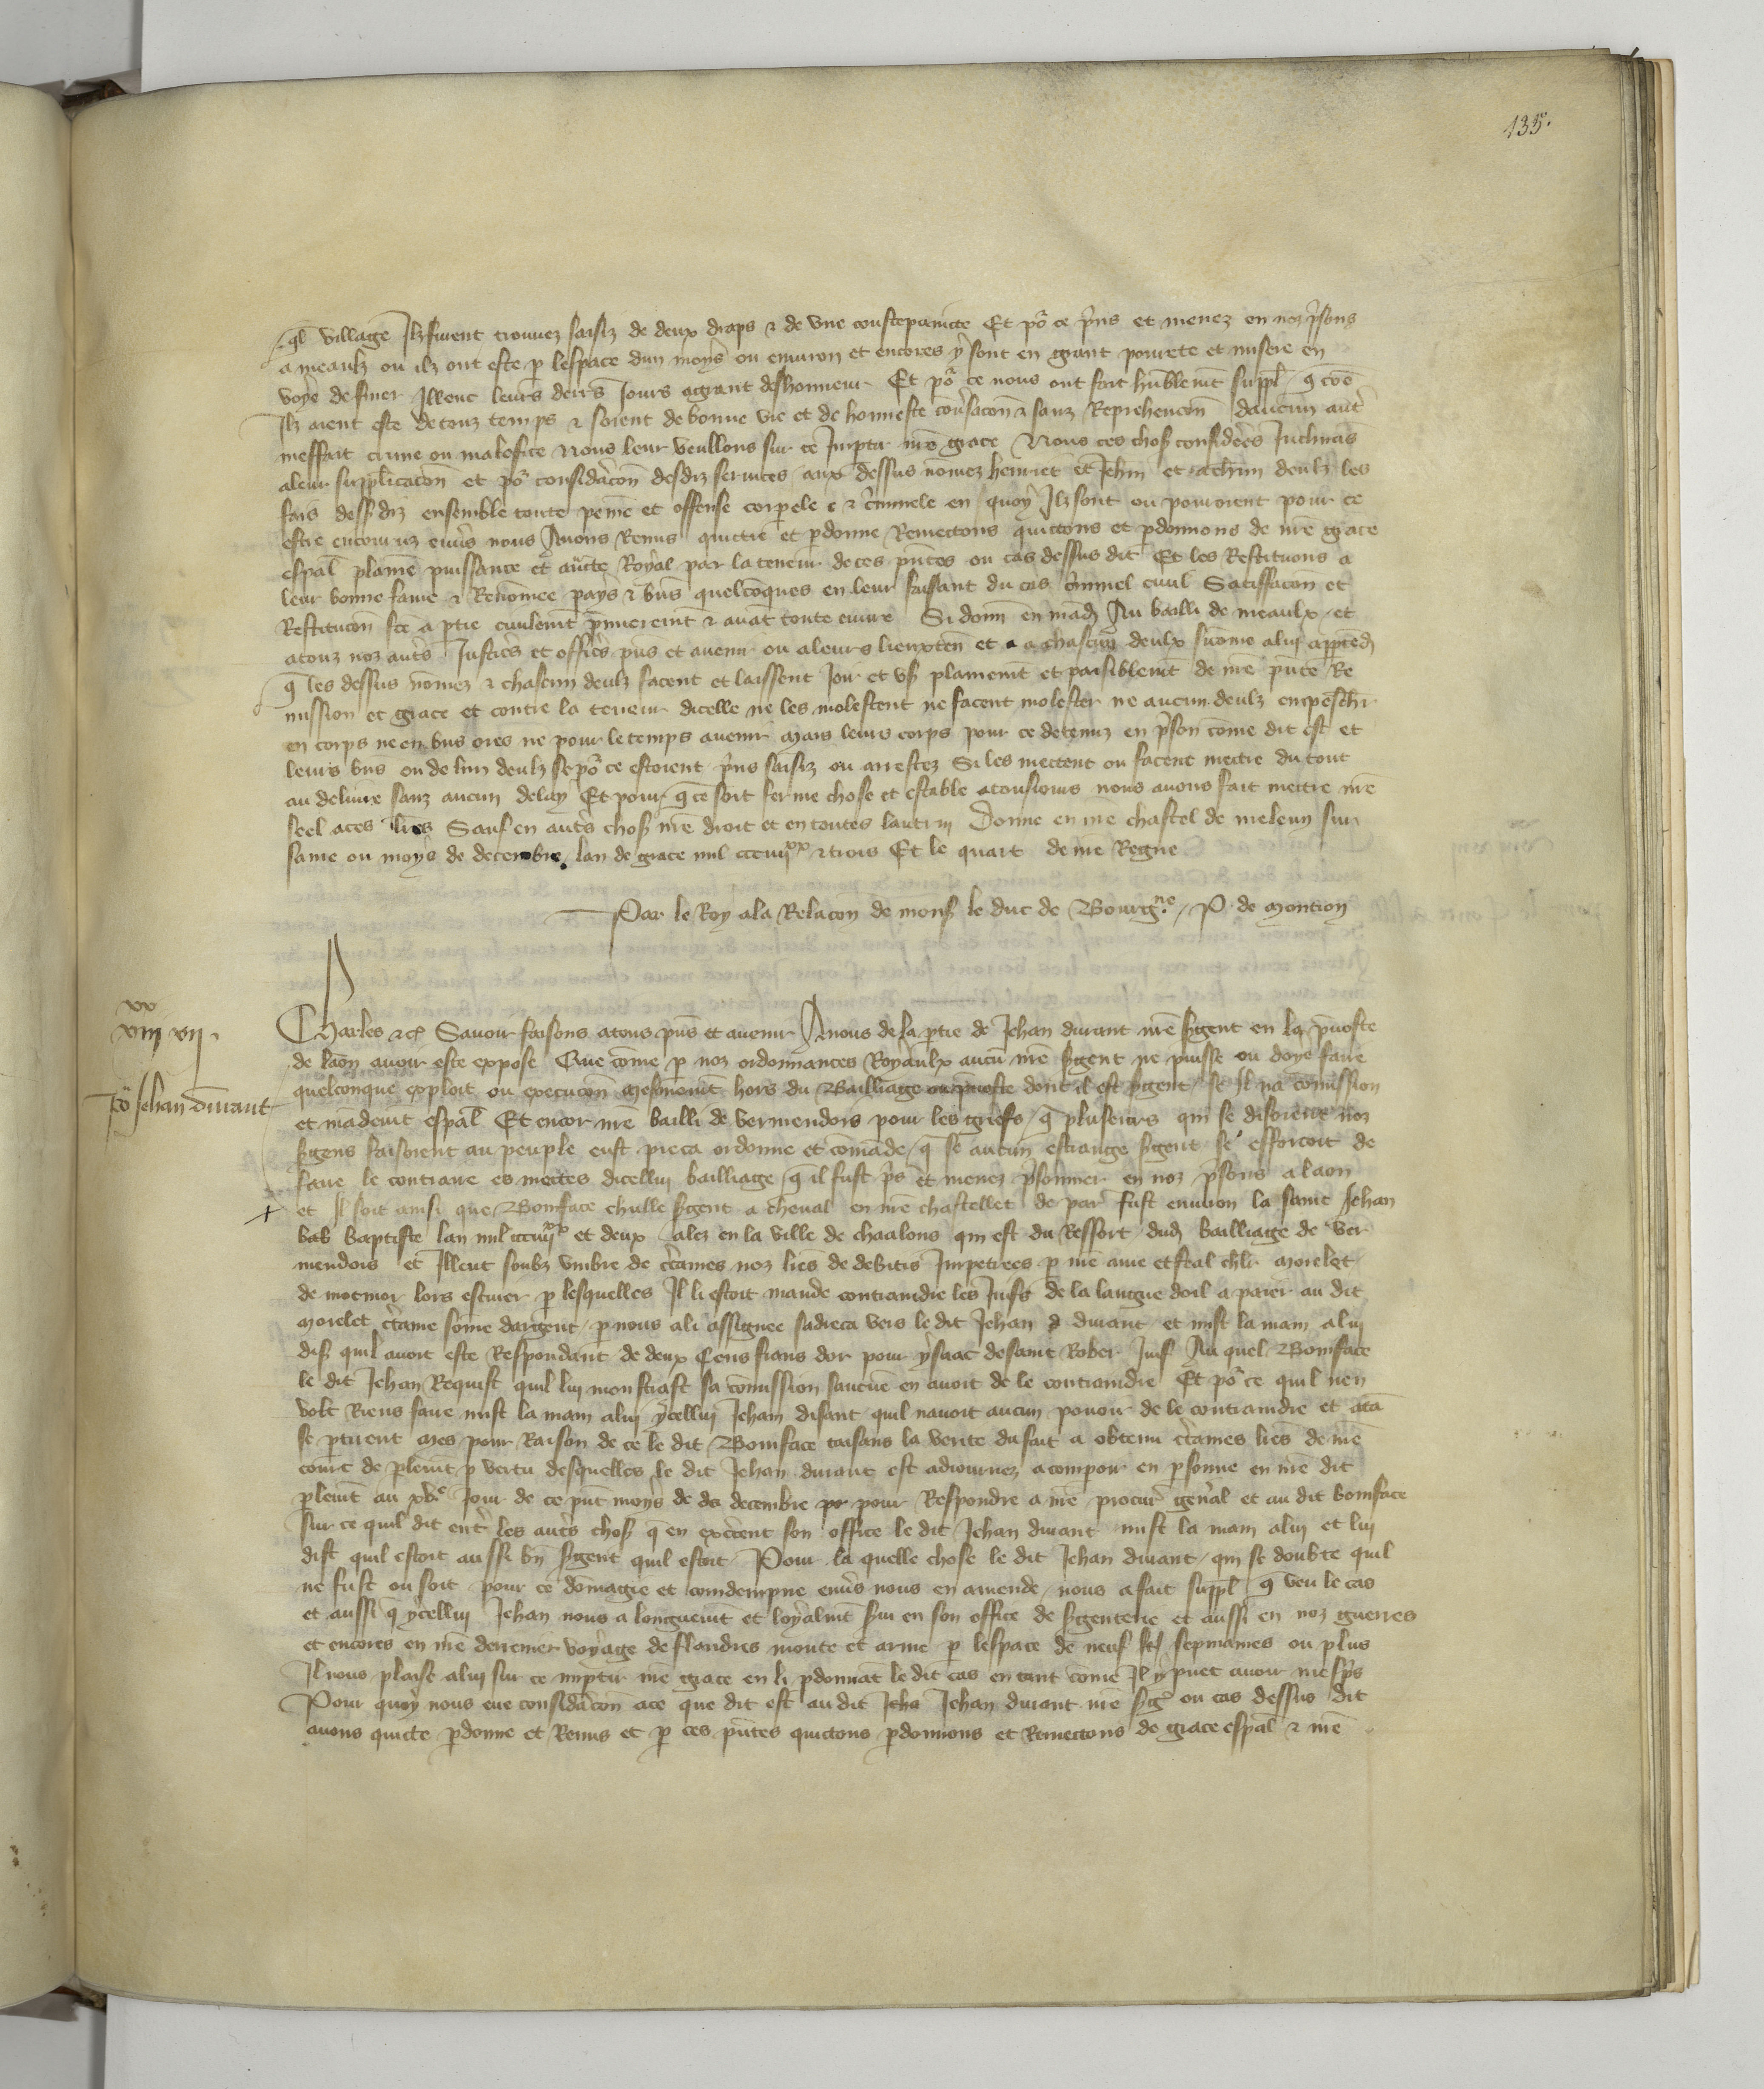 135.
ql village Ilz furent trouvez saisiz de deux draps & de une coustepointe Et po ce pns et menez en noz psons
a meaulx ou ilz ont este p lespace dun moys ou environ et encores y sont en grant povrete et misere en
voye de finer Illenc leurs derrs Jours a grant deshonneur Et po ce nous ont fait humblemt suppl q coe
Ilz aient este de touz temps & soient de bonne vie et de honneste conversacon & sanz Reprehencon daucun autre
meffait crime ou malefice Nous leur veullons sur ce Impartir nre grace Nous ces choses considerees Inclinans
a leur supplicacon et po consideracon desdiz services aux dessus nommez henriet et Jehan et a chacun deulz les
fais dessusdiz ensemble toute peine et offense corporele & criminele en quoy Ilz sont ou pourroient pour ce
estre encouruz envers nous Avons Remis quictie et pdonne Remectons quictons et pdonnons de nre grace
espal plaine puissance et aucte Royal par la teneur de ces pntes ou cas dessus dit Et les Restituons a
leur bonne fame & Renomee pays & bns quelconques en leur faisant du cas criminel civil Satisfacon et
Restitucon fce a ptie civilemt pmieremt & avat toute euvre Si donn en mad Au bailli de meaulx et
a touz noz autrs Justicrs et officrs pns et avenir ou a leurs lieuxten et a chascun deulx si come a lui apptedra
q les dessus nommez & chascun deulz facent et laissent Joir et user plainemt et paisiblemt de nre pnte Re
mission et grace et contre la teneur dicelle ne les molestent ne facent molester ne aucun deulz empescher
en corps ne en bns ores ne pour le temps avenir Mais leurs corps pour ce detenuz en pson come dit est et
leurs bns ou de lun deulz se po ce estoient pns saisiz ou arrestez Si les mectent ou facent mectre du tout
au delivre sanz aucun delay Et pour q ce soit ferme chose et estable a tousiours nous avons fait mectre nre
seel a ces lres Sauf en autrs choses nre droit et en toutes lautruy Donne en nre chastel de meleun sur
saine ou moys de decembre lan de grace mil ccc iiiixx & trois Et le quart de nre Regne
Par le Roy a la Relacon de mons le duc de Bourgne / P. de Montion
xx
viii vii.
Po Jehan durant
Charles &c Savoir faisons a tous pns et avenir A nous de la ptie de Jehan durant nre sgent en la pvoste
de laon avoir este expose Que come p noz ordonnances Royaulx aucun nre sgent ne puisse ou doye faire
quelconque exploit ou execucon mesmemt hors du Bailliage ou pvoste dont il est sgent se Il na comission
et mandemt espal Et encor nre bailli de vermendois pour les griefs q pluseurs qui se disoient noz
sgens faisoient au peuple eust pieca ordonne et comade q se aucun estrange sgent se efforcoit de
faire le contraire es mectes dicellui bailliage q il fust pris et menez prisonnier en noz prisons a laon
et Il soit ainsi que Boniface chulle sgent a cheval en nre chastellet de paris fust environ la saint Jehan
bab baptiste lan mil ccc iiiixx et deux alez en la ville de chaalons qui est du Ressort dud bailliage de Ver
mendois et Illeuc soubz umbre de ctaines noz lres de debitis Impetrees p nre ame et feal chlr Morelet
de moemor lors escuier p lesquelles Il li estoit mande contraindre les Juifs de la langue doil a paier au dit
Morelet ctaine some dargent p nous a li assignee sadreca vers le dit Jehan d durant et mist la main a lui
dis quil avoit este Respondant de deux Cens frans dor pour ysaac de saint Rober Juif Au quel Boniface
le dit Jehan Requist quil lui monstrast sa comission saucune en avoit de le contraindre Et po ce quil nen
volt Riens faire mist la main a lui ycellui Jehan disant quil navoit aucun povoir de le contraindre et atat
se ptirent Mes pour Raison de ce le dit Boniface taisans la verite du fait a obtenu ctaines lres de nre
court de plemt p vertu desquelles le dit Jehan durant est adiournez a comparoir en psonne en nre dit
plemt au xve Jour de ce pnt moys de de decembre pr pour Respondre a nre procur genal et au dit boniface
sur ce quil dit entre les autrs choses q en excent son office le dit Jehan durant mist la main a lui et lui
dist quil estoit aussi bn sgent quil estoit Pour la quelle chose le dit Jehan durant qui se doubte quil
ne fust ou soit pour ce domagie et condempne envers nous en amende nous a fait suppl q veu le cas
et aussi q ycellui Jehan nous a longuemt et loyalmt servi en son office de sgenterie et aussi en noz guerres
et encores en nre derrenier voyage de flandres monte et arme p lespace de neuf sep sepmaines ou plus
Il nous plaise a lui sur ce imptir nre grace en li pdonnat le dit cas en tant come Il y puet avoir mespris
Pour quoy nous eue consideracon a ce que dit est au dit Jeha Jehan durant nre sgt ou cas dessus dit
avons quicte pdonne et Remis et p ces pntes quictons pdonnons et Remectons de grace espal & nre